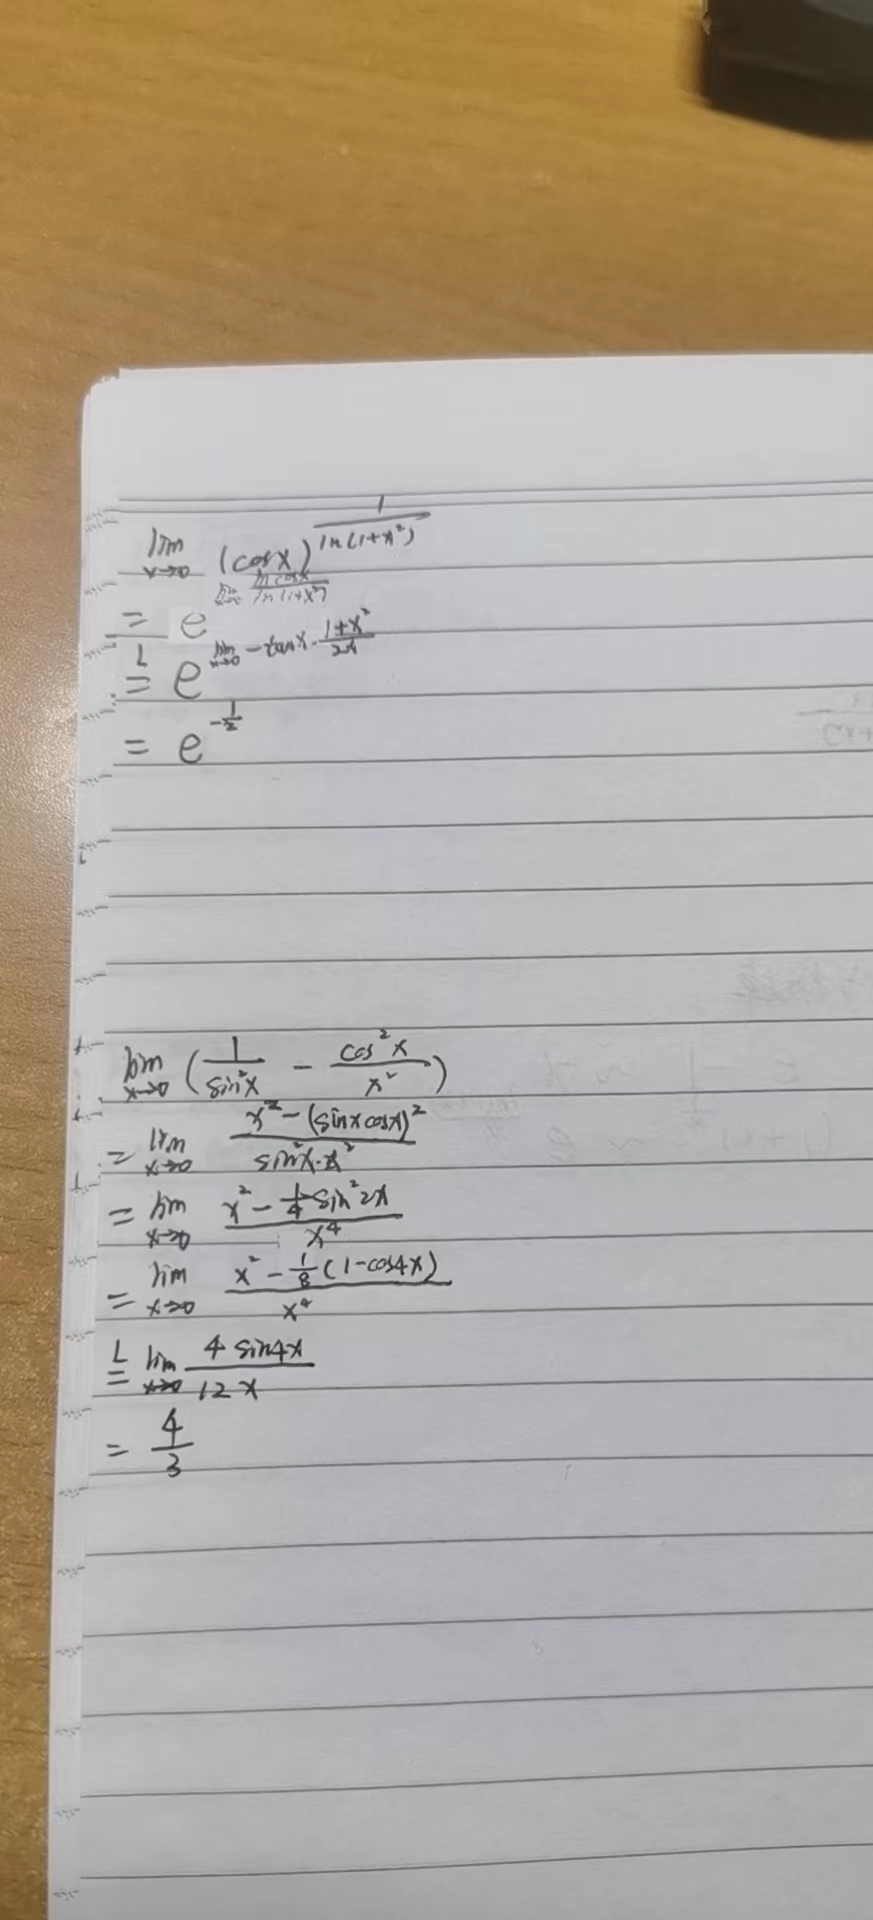 lim x→0 (cosx)^(1/ln(1+x²))
= e^(lim x→0 ln cosx/ln(1+x²))
L= e^(lim x→0 -tanx·(1+x²)/2x)
= e^(-1/2)
lim x→0 (1/sin²x - cos²x/x²)
= lim x→0 (x²-(sinxcosx)²)/(sin²x·x²)
= lim x→0 (x²-1/4 sin²2x)/x⁴
= lim x→0 (x²-1/8(1-cos4x))/x⁴
L= lim x→0 4sin4x/12x
= 4/3